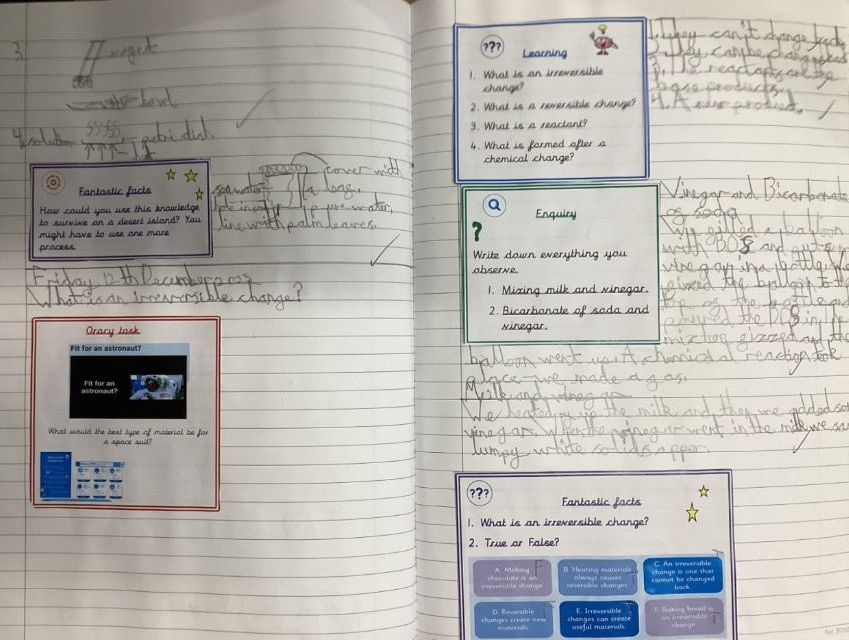 3.
magnet
bowl
4. solution
petri dish
Fantastic facts
How could you use this knowledge
to survive on a desert island? You
might have to use one more
process.
cover with
a
pure water,
line with palm leaves.
Friday 12th December
What is an irreversible change?
Oracy task
Fit for an astronaut?
Fit for an
astronaut?
What would the best type of material be for
a space suit?
???
Learning
1. What is an irreversible
change?
2. What is a reversible change?
3. What is a reactant?
4. What is formed after a
chemical change?
1. They can't change back
2. They can be changed
3. The reactants are the
base products.
4. A new product.
Enquiry
?
Write down everything you
observe
1. Mixing milk and vinegar.
2. Bicarbonate of soda and
vinegar.
Vinegar and Bicarbonate
of soda
We filled a balloon
with BOS and put
vinegar in a bottle. We
the balloon to the
of the bottle and
poured the BOS in
mixture fizzed and the
balloon went up. A chemical reaction took
place - we made a gas.
Milk and vinegar
We heated up the milk and then we added
vinegar. When the vinegar went in the milk we
lumpy white solids
???
Fantastic facts
1. What is an irreversible change?
2. True or False?
A. Melting
chocolate is an
irreversible change
F
B. Heating materials
always causes
reversible changes
C. An irreversible
change is one that
cannot be changed
back
T
D. Reversible
changes create new
materials
E. Irreversible
changes can create
useful materials
F. Baking bread is
an irreversible
change
T